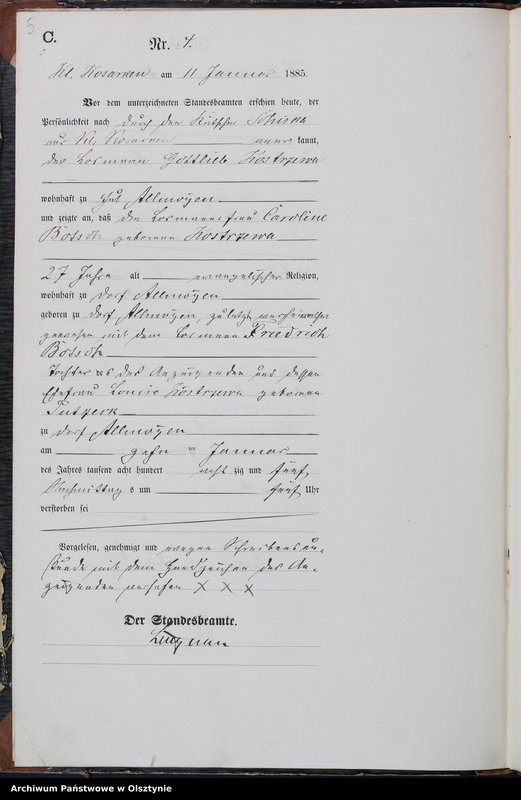 5
C.
Nr. 4.
Kl. Kosarken am 11 Januar 1885.
Vor dem unterzeichneten Standesbeamten erschien heute, der
Persönlichkeit nach durch den Kutscher
aus Kl. Kosarken anerkannt,
der Losmann Gottlieb Kostrzewa
wohnhaft zu Gut Allmoyen
und zeigte an, daß die Losmannsfrau Caroline
Botsch geborene Kostrzewa
27 Jahre alt evangelischer Religion,
wohnhaft zu Dorf Allmoyen
geboren zu Dorf Allmoyen, zuletzt verheirathet
gewesen mit dem Losmann Friedrich
Botsch
Tochter des Anzeigenden und dessen
Ehefrau Louise Kostrzewa geborene
zu Dorf Allmoyen
am zehn ten Januar
des Jahres tausend acht hundert acht zig und fünf
Nachmittags um fünf Uhr
verstorben sei
Vorgelesen, genehmigt und wegen Schreibensun-
kunde mit dem Handzeichen des An-
zeigenden versehen X X X
Der Standesbeamte.
Archiwum Państwowe w Olsztynie